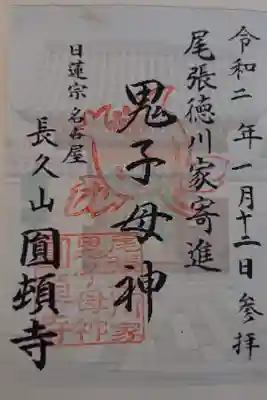 令和二年一月十二日参拝
尾張徳川家寄進
鬼子母神
日蓮宗名古屋
長久山圓頓寺